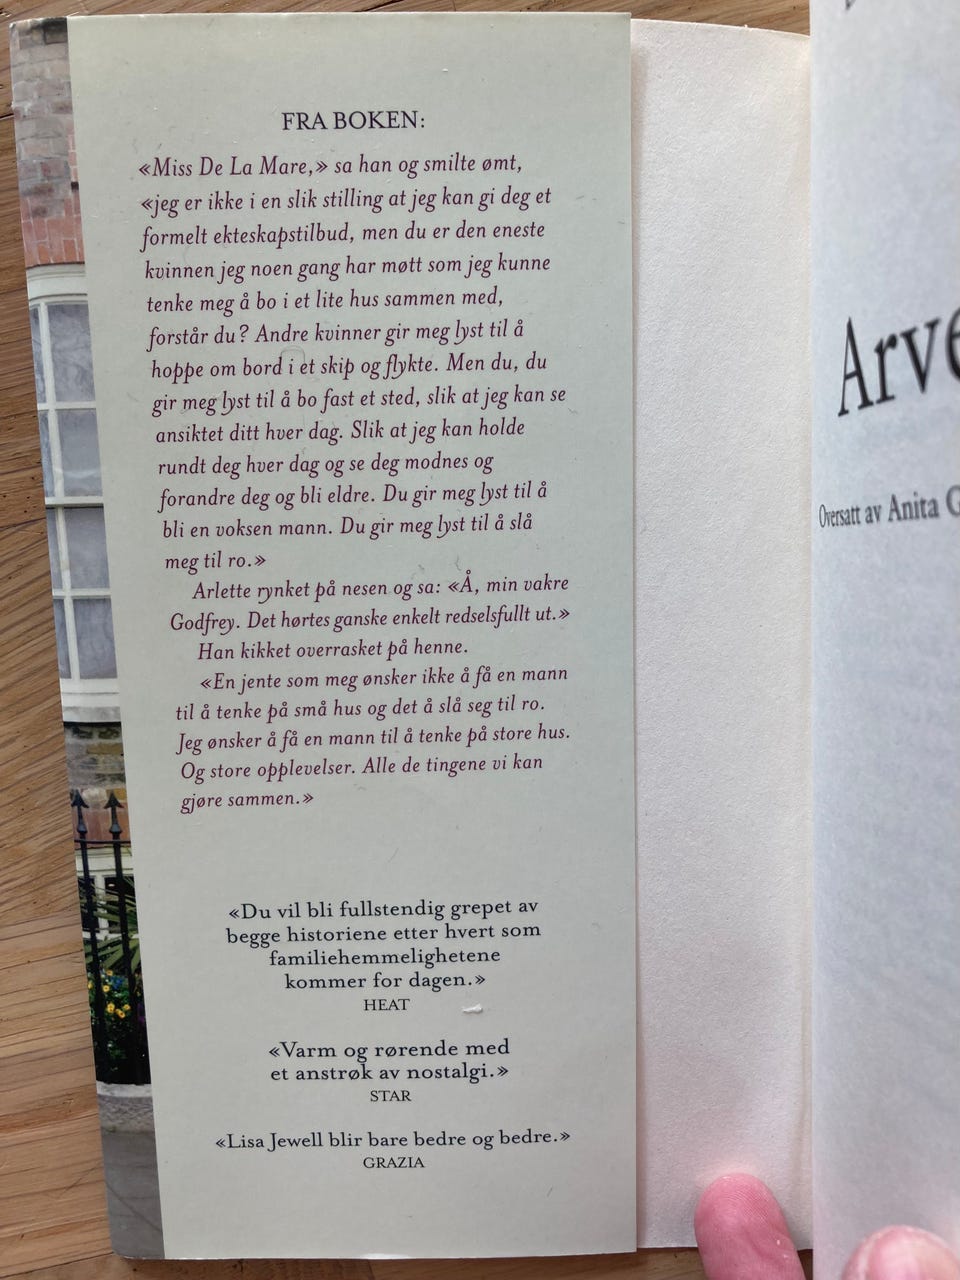 FRA BOKEN:
«Miss De La Mare,» sa han og smilte ømt,
«jeg er ikke i en slik stilling at jeg kan gi deg et
formelt ekteskapstilbud, men du er den eneste
kvinnen jeg noen gang har møtt som jeg kunne
tenke meg å bo i et lite hus sammen med,
forstår du? Andre kvinner gir meg lyst til å
hoppe om bord i et skip og flykte. Men du, du
gir meg lyst til å bo fast et sted, slik at jeg kan se
ansiktet ditt hver dag. Slik at jeg kan holde
rundt deg hver dag og se deg modnes og
forandre deg og bli eldre. Du gir meg lyst til å
bli en voksen mann. Du gir meg lyst til å slå
meg til ro.»
Arlette rynket på nesen og sa: «Å, min vakre
Godfrey. Det hørtes ganske enkelt redselsfullt ut.»
Han kikket overrasket på henne.
«En jente som meg ønsker ikke å få en mann
til å tenke på små hus og det å slå seg til ro.
Jeg ønsker å få en mann til å tenke på store hus.
Og store opplevelser. Alle de tingene vi kan
gjøre sammen.»
«Du vil bli fullstendig grepet av
begge historiene etter hvert som
familiehemmelighetene
kommer for dagen.»
HEAT
«Varm og rørende med
et anstrøk av nostalgi.»
STAR
«Lisa Jewell blir bare bedre og bedre.»
GRAZIA
Arve
Oversatt av Anita G